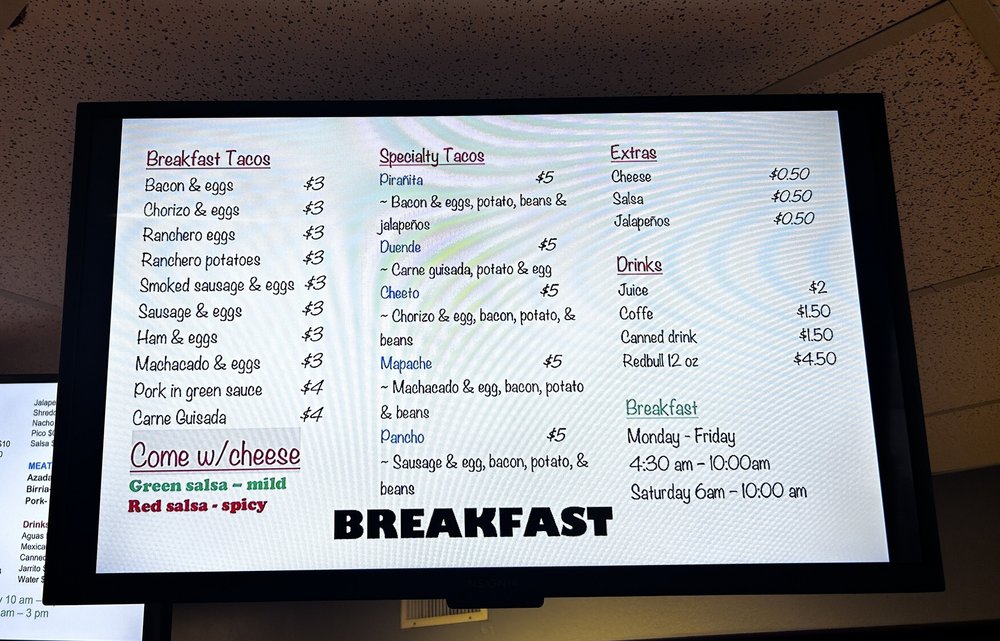 Breakfast Tacos
Bacon & eggs $3
Chorizo & eggs $3
Ranchero eggs $3
Ranchero potatoes $3
Smoked sausage & eggs $3
Sausage & eggs $3
Ham & eggs $3
Machacado & eggs $3
Pork in green sauce $4
Carne Guisada $4
Come w/cheese
Green salsa – mild
Red salsa - spicy
Specialty Tacos
Pirañita $5
~ Bacon & eggs, potato, beans &
jalapeños
Duende $5
~ Carne guisada, potato & egg
Cheeto $5
~ Chorizo & egg, bacon, potato, &
beans
Mapache $5
~ Machacado & egg, bacon, potato
& beans
Pancho $5
~ Sausage & egg, bacon, potato, &
beans
Extras
Cheese $0.50
Salsa $0.50
Jalapeños $0.50
Drinks
Juice $2
Coffe $1.50
Canned drink $1.50
Redbull 12 oz $4.50
Breakfast
Monday - Friday
4:30 am – 10:00am
Saturday 6am – 10:00 am
BREAKFAST
INSIGNIA
Nacho
Pico
Salsa
MEAT
Birria-
Pork-
Drinks
Aguas
Jarrito
Water
10 am –
am – 3 pm